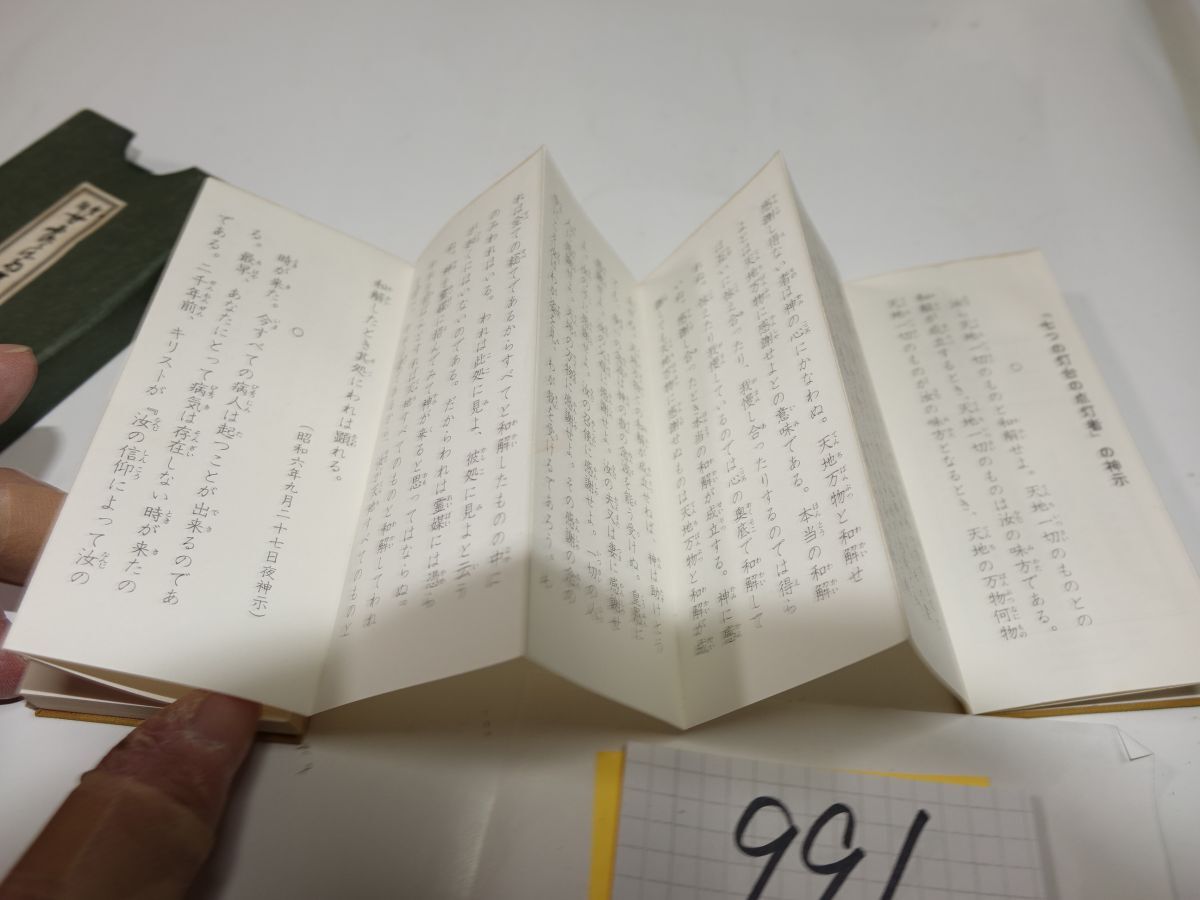 『七つの灯台の点灯者』の神示
○
汝ら天地一切のものと和解せよ。天地一切のものとの
和解が成立するとき、天地一切のものは汝の味方である。
天地一切のものが汝の味方となるとき、天地の万物何物
感謝し得ない者は神の心にかなわぬ。天地万物と和解せ
よとは天地万物に感謝せよとの意味である。本当の和解
は互いに怺え合ったり、我慢し合ったりするのでは得ら
れぬ。怺えたり我慢しているのでは心の奥底で和解して
いぬ。感謝し合ったとき本当の和解が成立する。神に感
謝しても天地万物に感謝せぬものは天地万物と和解が成
神は助けとう
神の救の念波を能う受けぬ。皇恩に
汝の夫又は妻に感謝せ
汝の召使に感謝せよ。一切の人
天地の万物に感謝せよ。その感謝の念の
わが姿を見、わが救を受けるであろう。わ
れは全ての総てであるからすべてと和解したものの中に
のみわれはいる。われは此処に見よ、彼処に見よと云う
が如くにはいないのである。だからわれは霊媒には憑ら
ぬ。神を霊媒に招んでみて神が来ると思ってはならぬ。
すべてのものと和解してわれ
汝が天地すべてのものと
和解したとき其処にわれは顕れる。
(昭和六年九月二十七日夜神示)
○
時が来た。今すべての病人は起つことが出来るのであ
る。最早、あなたにとって病気は存在しない時が来たの
である。二千年前、キリストが『汝の信仰によって汝の
991